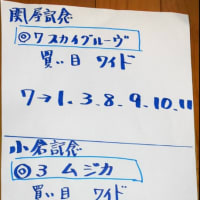 関屋記念
◎7 スカイグルーヴ
買い目 ワイド
7→1、3、8、9、10、11
小倉記念
◎3 ムジカ
買い目 ワイド